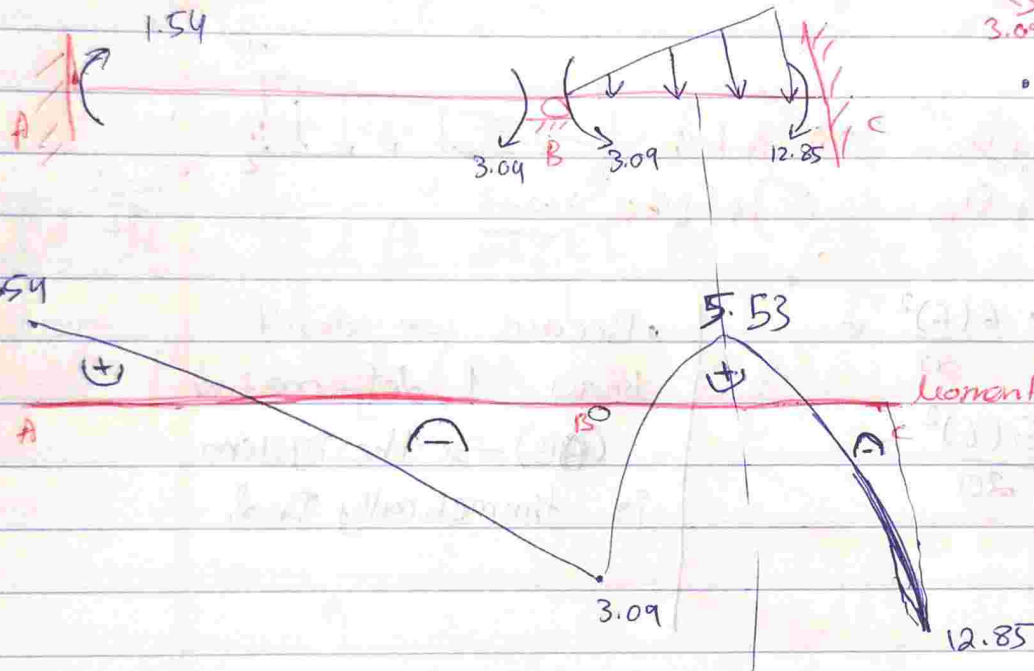 1.54
3.0
A
3.09
B
3.09
12.85
C
54
5.53
+
+
Moment
A
B
-
-
C
3.09
12.85